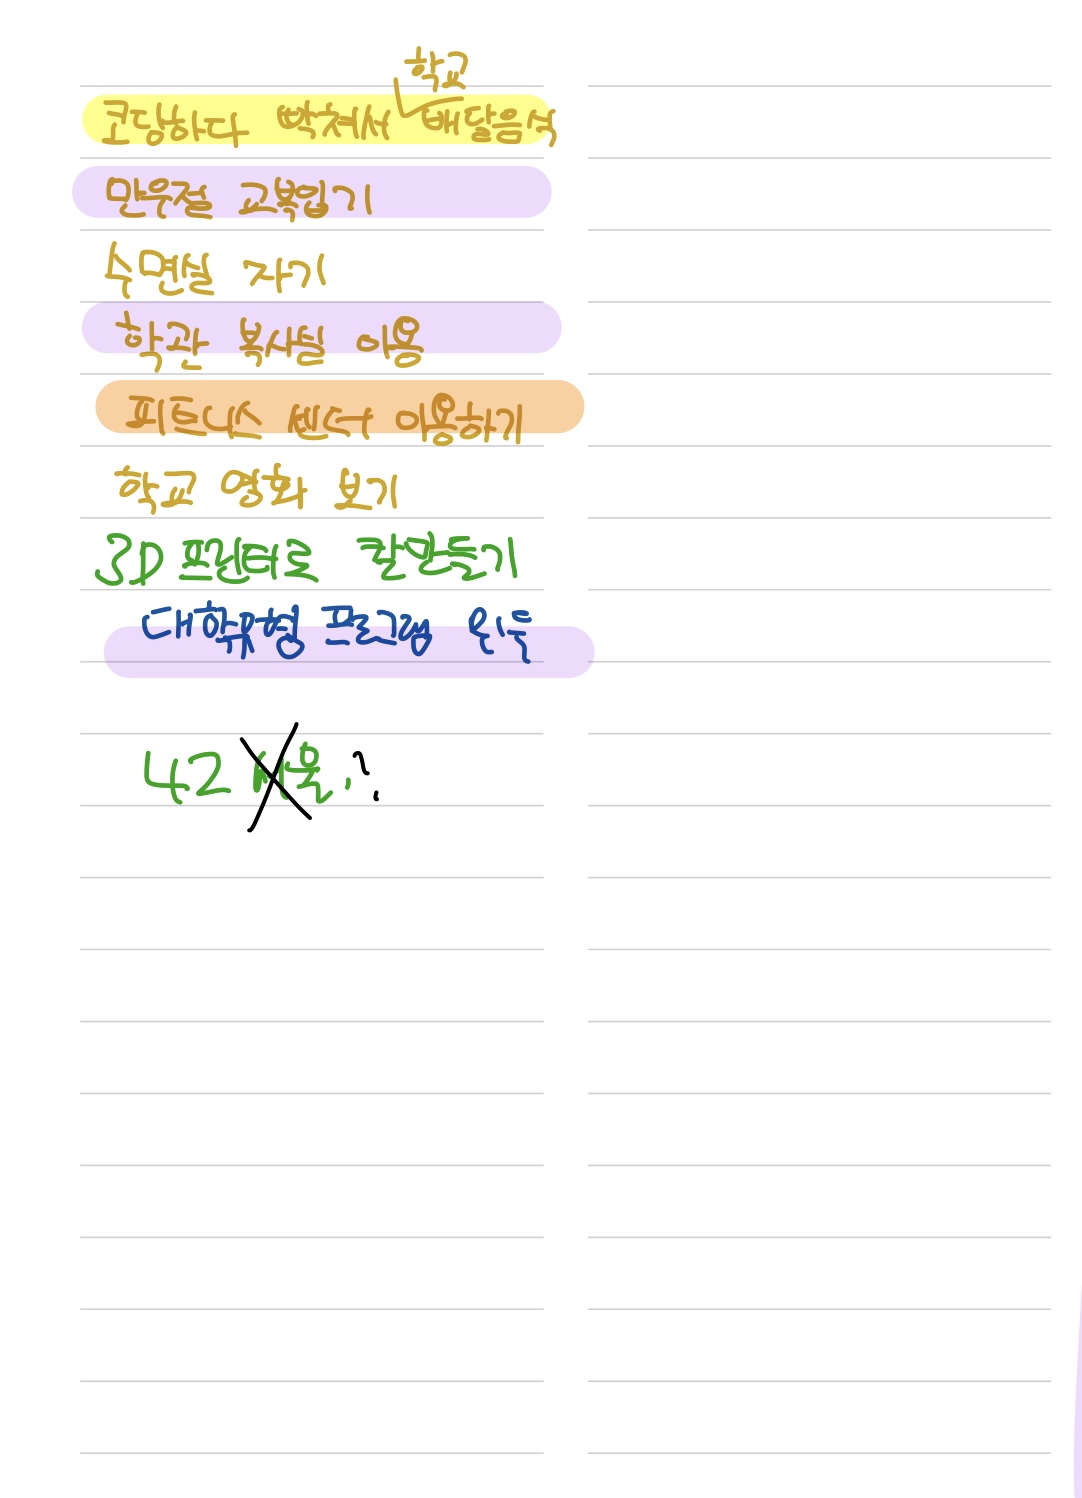 코딩하다 빡쳐서 학교 배달음식
만우절 교복입기
수면실 자기
학관 복사실 이용
피트니스 센터 이용하기
학교 영화 보기
3D 프린터로 칼만들기
대학유형 프로그램
42 서울.?